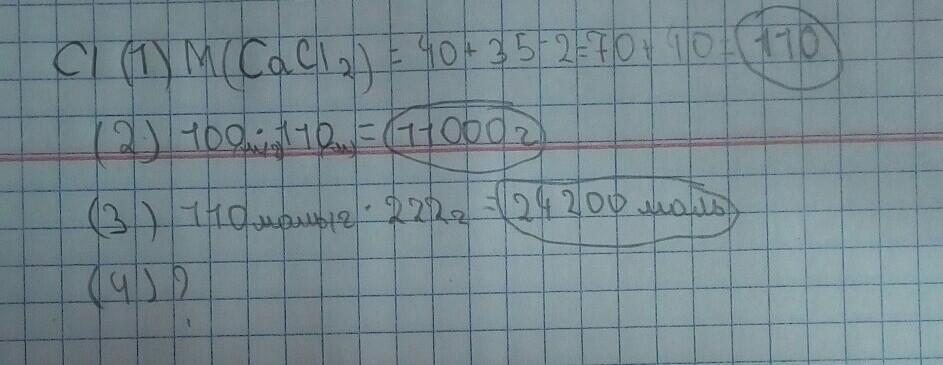 Cl (1) M(CaCl2) = 40 + 35·2 = 70 + 40 = 110
(2) 100 · 110 = 11000 г
(3) 110 моль · 222 г = 24200 моль
(4) ?